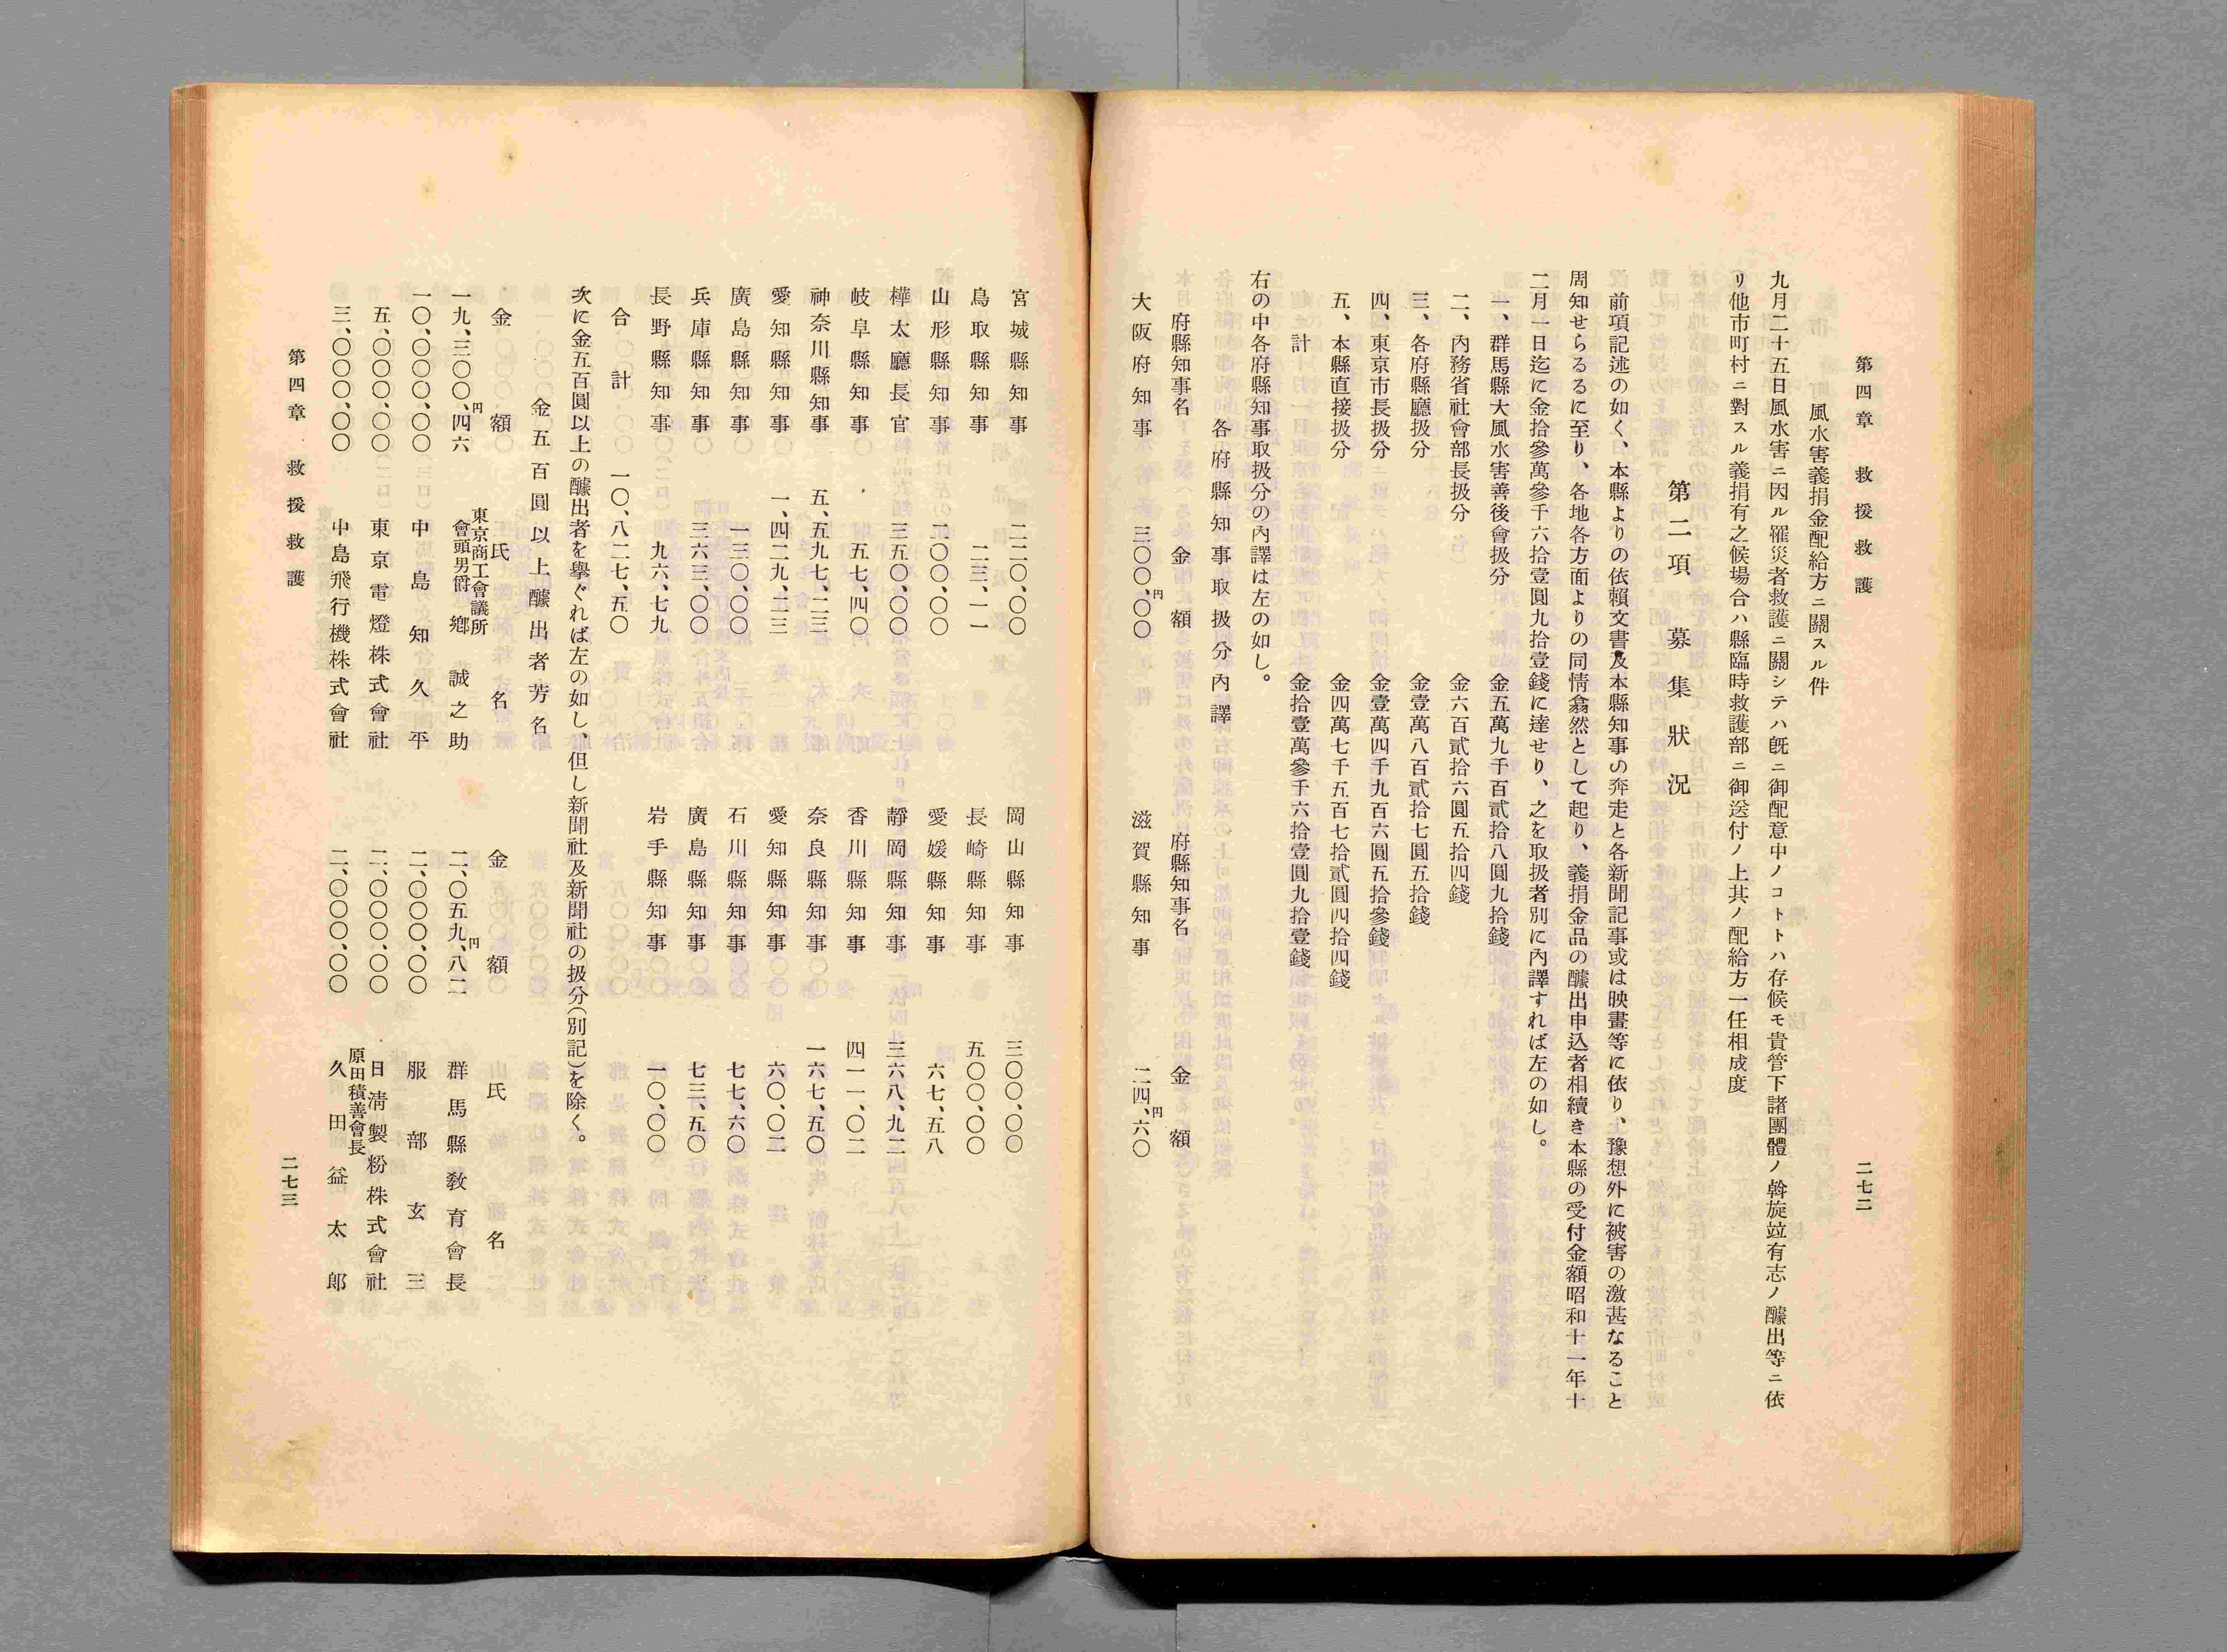 第四章　救援救護
二七二
風水害義捐金配給方ニ關スル件
九月二十五日風水害ニ因ル罹災者救護ニ關シテハ旣ニ御配意中ノコトトハ存候モ貴管下諸團體ノ斡旋竝有志ノ醵出等ニ依
リ他市町村ニ對スル義捐有之候場合ハ縣臨時救護部ニ御送付ノ上其ノ配給方一任相成度
第二項　募集狀況
前項記述の如く、本縣よりの依賴文書及本縣知事の奔走と各新聞記事或は映畫等に依り、豫想外に被害の激甚なること
周知せらるるに至り、各地各方面よりの同情翕然として起り、義捐金品の醵出申込者相續き本縣の受付金額昭和十一年十
二月一日迄に金拾參萬參千六拾壹圓九拾壹錢に達せり、之を取扱者別に內譯すれば左の如し。
一、群馬縣大風水害善後會扱分　金五萬九千百貳拾八圓九拾錢
二、內務省社會部長扱分　金六百貳拾六圓五拾四錢
三、各府縣廳扱分　金壹萬八百貳拾七圓五拾錢
四、東京市長扱分　金壹萬四千九百六圓五拾參錢
五、本縣直接扱分　金四萬七千五百七拾貳圓四拾四錢
計　金拾壹萬參千六拾壹圓九拾壹錢
右の中各府縣知事取扱分の內譯は左の如し。
各府縣知事取扱分內譯
府縣知事名　金額　府縣知事名　金額
大阪府知事　三〇〇、〇〇円　滋賀縣知事　二四、六〇円
宮城縣知事　二二〇、〇〇　岡山縣知事　三〇〇、〇〇
鳥取縣知事　二三、一一　長崎縣知事　五〇〇、〇〇
山形縣知事　二〇〇、〇〇　愛媛縣知事　六七、五八
樺太廳長官　三五〇、〇〇　靜岡縣知事　三六八、九二
岐阜縣知事　五七、四〇　香川縣知事　四一一、〇二
神奈川縣知事　五、五九七、二三　奈良縣知事　一六七、五〇
愛知縣知事　一、四二九、二三　愛知縣知事　六〇、〇二
廣島縣知事　一三〇、〇〇　石川縣知事　七七、六〇
兵庫縣知事　三六三、〇〇　廣島縣知事　七三、五〇
長野縣知事　九六、七九　岩手縣知事　一〇、〇〇
合計　一〇、八二七、五〇
次に金五百圓以上の醵出者を擧ぐれば左の如し、但し新聞社及新聞社の扱分(別記)を除く。
金五百圓以上醵出者芳名
金額　氏名　金額　氏名
一九、三〇〇、四六円　東京商工會議所會頭男爵　鄕誠之助　二、〇五九、八二円　群馬縣敎育會長
一〇、〇〇〇、〇〇　中島知久平　二、〇〇〇、〇〇　服部玄三
五、〇〇〇、〇〇　東京電燈株式會社　二、〇〇〇、〇〇　日淸製粉株式會社
三、〇〇〇、〇〇　中島飛行機株式會社　二、〇〇〇、〇〇　原田積善會長　久田益太郞
第四章　救援救護
二七三